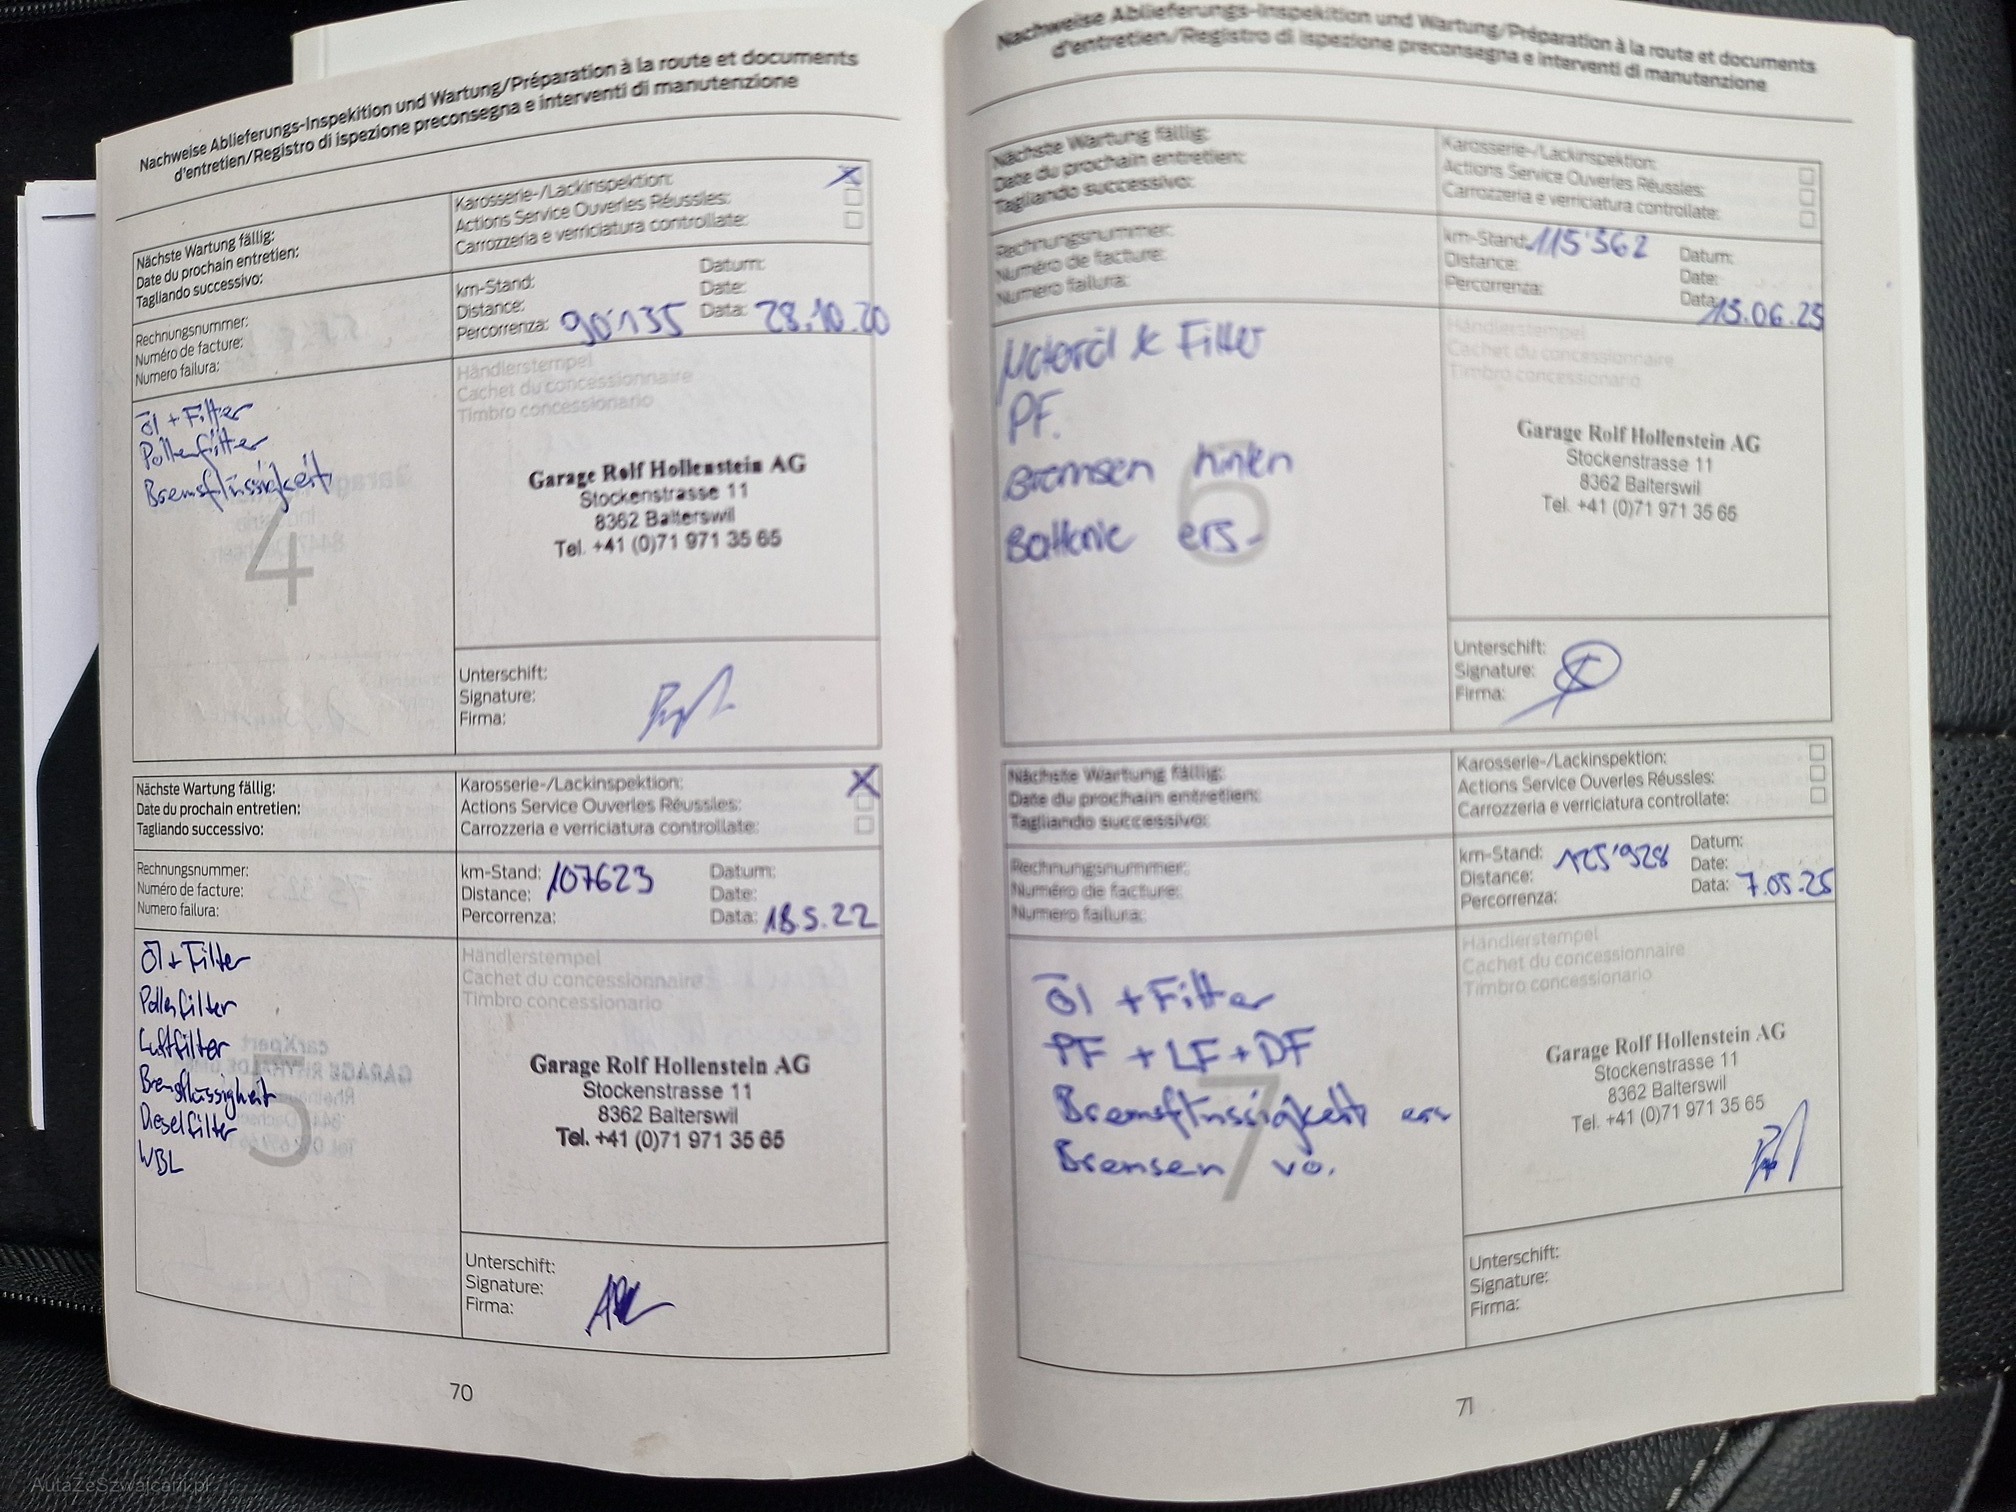 Nachweise Ablieferungs-Inspekition und Wartung/Préparation à la route et documents
d'entretien/Registro di ispezione preconsegna e interventi di manutenzione
Nächste Wartung fällig:
Date du prochain entretien:
Tagliando successivo:
Karosserie-/Lackinspektion:
Actions Service Ouverles Réussles:
Carrozzeria e verriciatura controllate:
Rechnungsnummer:
Numéro de facture:
Numero failura:
km-Stand:
Distance:
Percorrenza: 90'135
Datum:
Date:
Data: 28.10.20
Öl + Filter
Pollenfilter
Bremsflüssigkeit
4
Händlerstempel
Cachet du concessionnaire
Timbro concessionario
Garage Rolf Hollenstein AG
Stockenstrasse 11
8362 Balterswil
Tel. +41 (0)71 971 35 65
Unterschift:
Signature:
Firma:
Nächste Wartung fällig:
Date du prochain entretien:
Tagliando successivo:
Karosserie-/Lackinspektion:
Actions Service Ouverles Réussles:
Carrozzeria e verriciatura controllate:
Rechnungsnummer:
Numéro de facture:
Numero failura:
km-Stand: 107623
Distance:
Percorrenza:
Datum:
Date:
Data: 18.5.22
Öl + Filter
Pollenfilter
Luftfilter
Bremsflüssigkeit
Dieselfilter
WBL
5
Händlerstempel
Cachet du concessionnaire
Timbro concessionario
Garage Rolf Hollenstein AG
Stockenstrasse 11
8362 Balterswil
Tel. +41 (0)71 971 35 65
Unterschift:
Signature:
Firma:
70
Nachweise Ablieferungs-Inspekition und Wartung/Préparation à la route et documents
d'entretien/Registro di ispezione preconsegna e interventi di manutenzione
Nächste Wartung fällig:
Date du prochain entretien:
Tagliando successivo:
Karosserie-/Lackinspektion:
Actions Service Ouverles Réussles:
Carrozzeria e verriciatura controllate:
Rechnungsnummer:
Numéro de facture:
Numero failura:
km-Stand: 115'362
Distance:
Percorrenza:
Datum:
Date:
Data:
Motoröl & Filter
PF.
Bremsen hinten
Batterie ers.
6
Händlerstempel
Cachet du concessionnaire
Timbro concessionario
Garage Rolf Hollenstein AG
Stockenstrasse 11
8362 Balterswil
Tel. +41 (0)71 971 35 65
Unterschift:
Signature:
Firma:
Nächste Wartung fällig:
Date du prochain entretien:
Tagliando successivo:
Karosserie-/Lackinspektion:
Actions Service Ouverles Réussles:
Carrozzeria e verriciatura controllate:
Rechnungsnummer:
Numéro de facture:
Numero failura:
km-Stand: 125'928
Distance:
Percorrenza:
Datum:
Date:
Data: 7.05.25
Öl + Filter
PF + LF + DF
Bremsflüssigkeit ers
Bremsen vo.
7
Händlerstempel
Cachet du concessionnaire
Timbro concessionario
Garage Rolf Hollenstein AG
Stockenstrasse 11
8362 Balterswil
Tel. +41 (0)71 971 35 65
Unterschift:
Signature:
Firma:
71
AutaZeSzwajcarii.pl